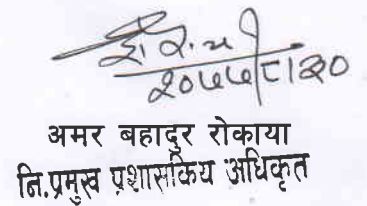 २०७७|८|३०
अमर बहादुर रोकाया
नि.प्रमुख प्रशासकिय अधिकृत